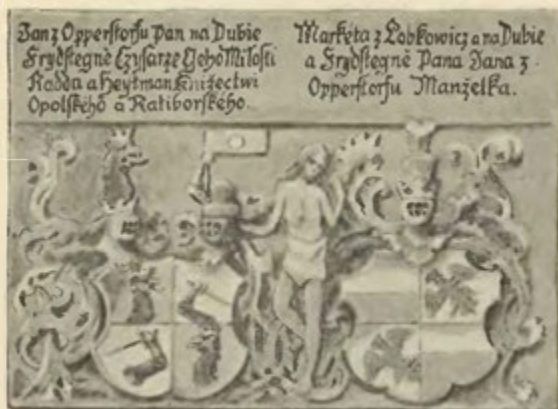 Jan z Opperstorfu pan na Dubie
Frydstegně Czysarze Jeho Milosti
Radda a Heytman Knižectwi
Opolského a Ratiborského.
Markéta z Lobkowicz a na Dubie
a Frydstegně Pana Jana z
Opperstorfu Manželka.